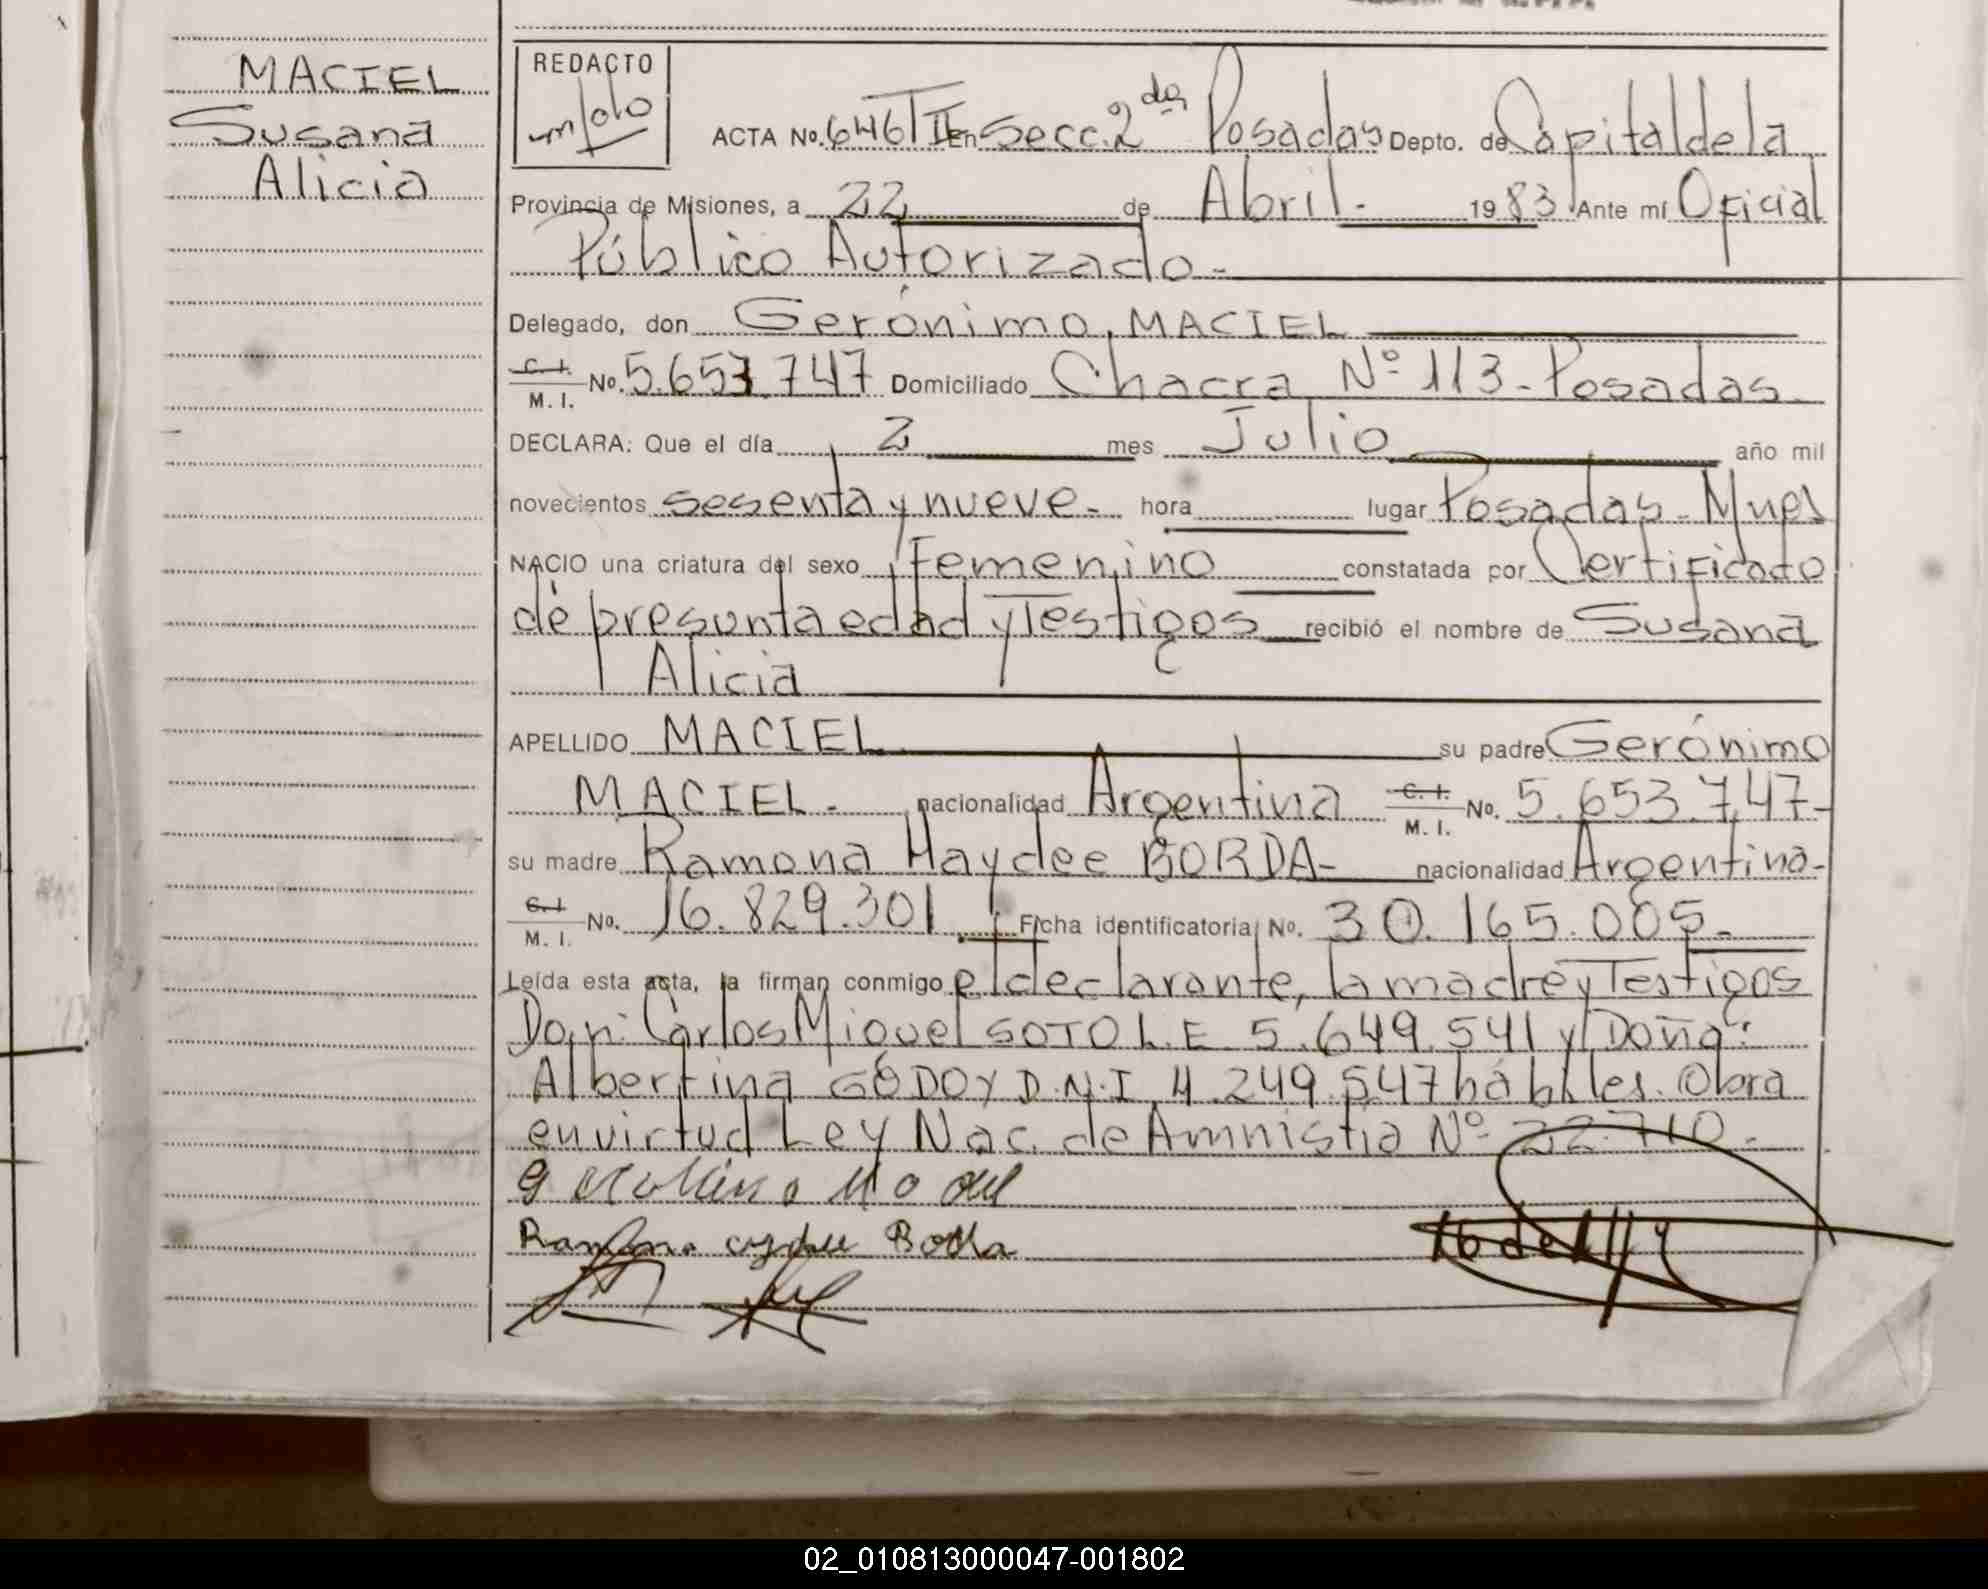 MACIEL
Susana
Alicia
REDACTO
ACTA No. 646 TII En Secc. 2da Posadas Depto. de Capital de la
Provincia de Misiones, a 22 de Abril.- 1983 Ante mí Oficial
Público Autorizado.-
Delegado, don Gerónimo, MACIEL
C. I. M. I. No. 5.653.747 Domiciliado Chacra Nº 113-Posadas.
DECLARA: Que el día 2 mes Julio año mil
novecientos sesenta y nueve.- hora lugar Posadas - Mnes
NACIO una criatura del sexo Femenino constatada por Certificado
de presunta edad y Testigos recibió el nombre de Susana
Alicia
APELLIDO MACIEL su padre Gerónimo
MACIEL.- nacionalidad Argentina C. I. M. I. No. 5.653.747-
su madre Ramona Haydee BORDA- nacionalidad Argentina-
C. I. M. I. No. 16.829.301 Ficha identificatoria No. 30.165.005.-
Leída esta acta, la firman conmigo el declarante, la madre y Testigos
Don: Carlos Miguel SOTO L.E. 5.649.541 y Doña:
Albertina GODOY D.N.I. 4.249.547 hábiles. Obra
en virtud Ley Nac. de Amnistia Nº 22.710.-
02_010813000047-001802